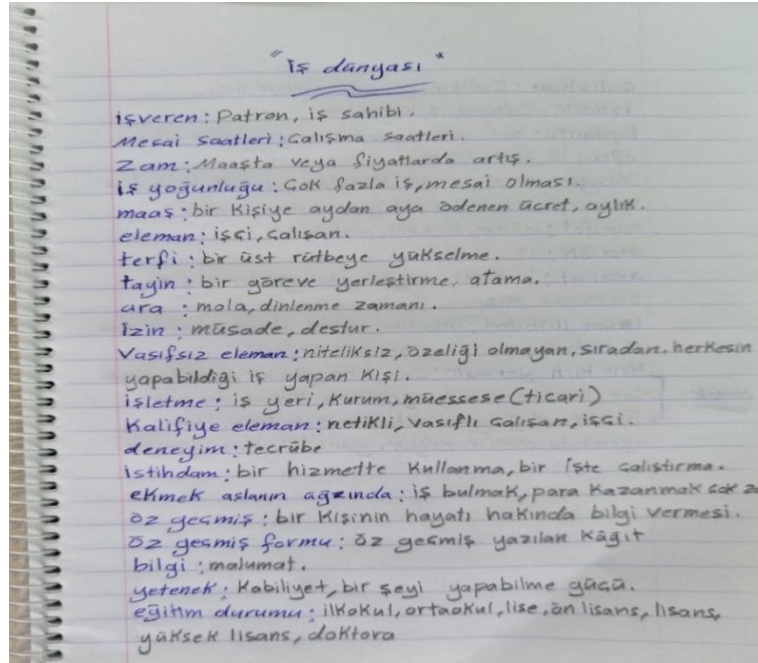 "İş dünyası"
işveren: Patron, iş sahibi.
Mesai saatleri: Çalışma saatleri.
Zam: Maaşta veya fiyatlarda artış.
iş yoğunluğu: Çok fazla iş, mesai olması.
maaş: bir kişiye aydan aya ödenen ücret, aylık.
eleman: işçi, çalışan.
terfi: bir üst rütbeye yükselme.
tayin: bir göreve yerleştirme, atama.
ara: mola, dinlenme zamanı.
İzin: müsade, destur.
Vasıfsız eleman: niteliksiz, özeliği olmayan, sıradan. herkesin
yapabildiği iş yapan kişi.
işletme: iş yeri, kurum, müessese (ticari)
Kalifiye eleman: netikli, vasıflı çalışan, işçi.
deneyim: tecrübe
istihdam: bir hizmette kullanma, bir işte çalıştırma.
ekmek aslanın ağzında: iş bulmak, para kazanmak çok
öz geçmiş: bir kişinin hayatı hakkında bilgi vermesi.
öz geçmiş formu: öz geçmiş yazılan kâğıt
bilgi: malumat.
yetenek: Kabiliyet, bir şeyi yapabilme gücü.
eğitim durumu: ilkokul, ortaokul, lise, ön lisans, lisans,
yüksek lisans, doktora